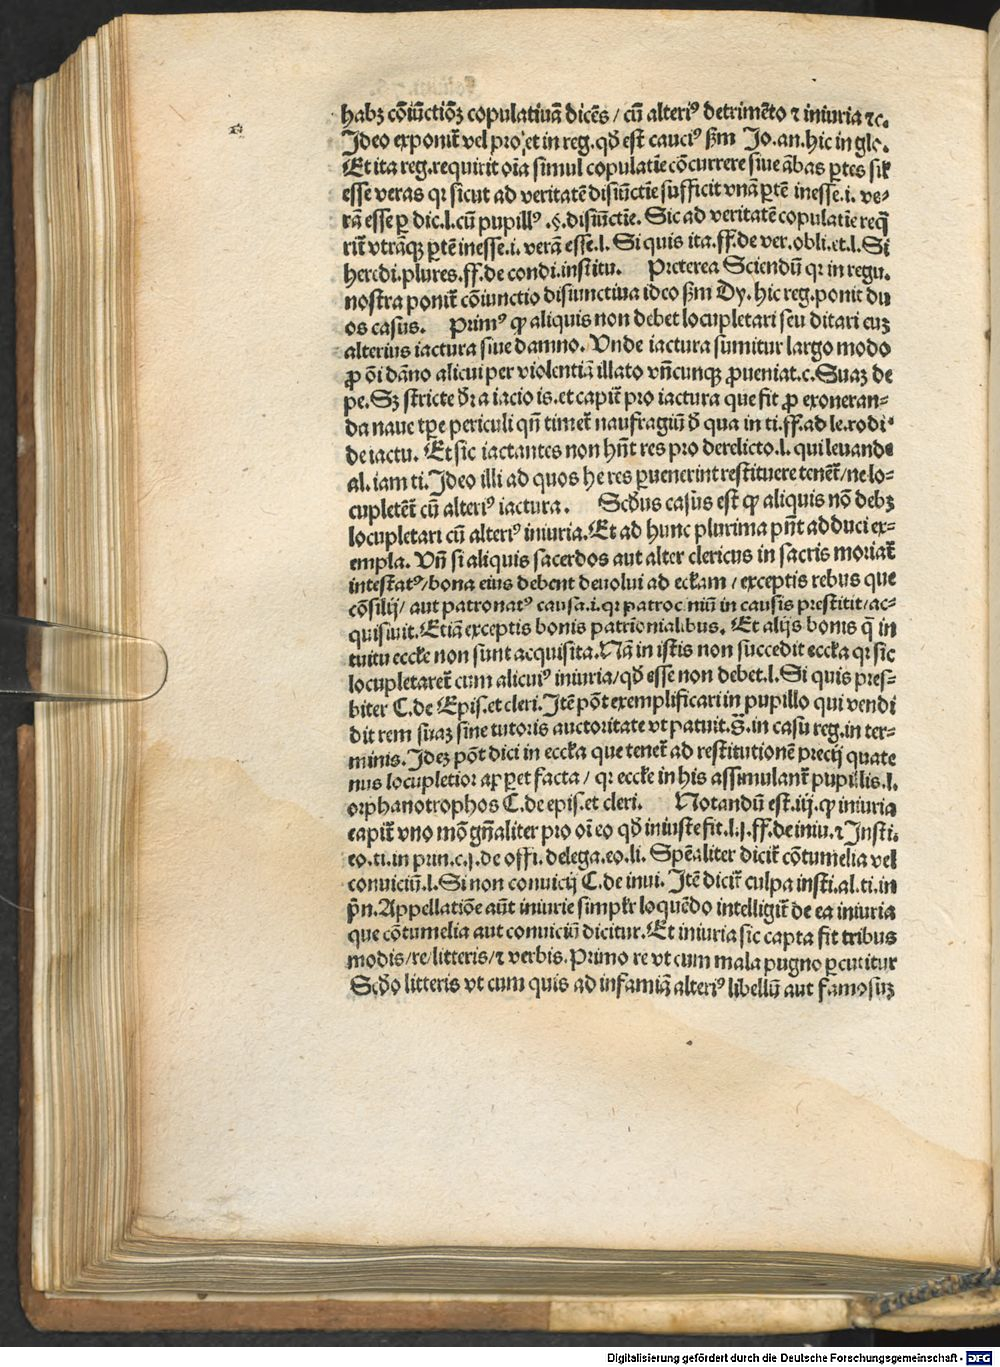 habꝫ cõiũctiõꝫ copulatiuã dicẽs / cũ alteriꝰ detrimẽto ⁊ iniuria ⁊c.
Ideo exponit᷑ vel pro, et in reg. qđ est cauciꝰ ẞm Jo. an. hic in glo.
Et ita reg. requirit oĩa simul copulatiẽ cõcurrere siue ãbas ꝑtes sił
esse veras qꝛ sicut ad veritatẽ disiũctiẽ sufficit vnã ꝑtẽ inesse .i. ve⸗
rã esse ꝑ dic. l. cũ pupillꝰ .§. disiũctiẽ. Sic ad veritatẽ copulatiẽ req̃
rit᷑ vtrãqꝫ ꝑtẽ inesse .i. verã esse. l. Si quis ita. ff. de ver. obli. et. l. Si
heredi. plures. ff. de condi. institu. Preterea Sciendũ qꝛ in regu.
nostra ponit᷑ cõiunctio disiunctiua ideo ẞm Dy. hic reg. ponit du
os casus. Primꝰ ꝙ aliquis non debet locupletari seu ditari cuꝫ
alterius iactura siue damno. Vnde iactura sumitur largo modo
ꝓ õi dãno alicui per violentiã illato vñcunqꝫ ꝓueniat. c. Suaꝫ de
pe. Sꝫ stricte đr a iacio is. et capit᷑ pro iactura que fit ꝓ exoneran⸗
da naue tꝑe periculi qñ timet᷑ naufragiũ đ qua in ti. ff. ad le. rodi.
de iactu. Et sic iactantes non hñt res pro derelicto. l. qui leuande
al. iam ti. Ideo illi ad quos he res ꝑuenerint restituere tenet᷑ / ne lo⸗
cupletẽt cũ alteriꝰ iactura. Scđus casus est ꝙ aliquis nõ debꝫ
locupletari cũ alteriꝰ iniuria. Et ad hunc plurima pñt adduci ex⸗
empla. Vñ si aliquis sacerdos aut alter clericus in sacris moriat᷑
intestatꝰ / bona eius debent deuolui ad eccłam / exceptis rebus que
cõsilij / aut patronatꝰ causa .i. qꝛ patrociniũ in causis prestitit / ac⸗
quisiuit. Etiã exceptis bonis patrimonialibus. Et alijs bonis q̃ in
tuitu eccłe non sunt acquisita. Nã in istis non succedit eccła qꝛ sic
locupletaret᷑ cum alicuiꝰ iniuria / qđ esse non debet. l. Si quis pres⸗
biter C. de Epis. et cleri. Itẽ põt exemplificari in pupillo qui vendi
dit rem suaꝫ sine tutoris auctoritate vt patuit. S̃. in casu reg. in ter⸗
minis. Ideꝫ põt dici in eccła que tenet᷑ ad restitutionẽ precij quate
nus locupletior apꝑet facta / qꝛ eccłe in his assimulant᷑ pupillis. l.
orphanotrophos C. de epis. et cleri. Notandũ est .iij. ꝙ iniuria
capit᷑ vno mõ gñaliter pro oĩ eo qđ iniuste fit. l. j. ff. de iniu. ⁊ Insti.
eo. ti. in prin. c. j. de offi. delega. eo. li. Spẽaliter dicit᷑ cõtumelia vel
conuiciũ. l. Si non conuicij C. de inui. Itẽ dicit᷑ culpa insti. al. ti. in
p̃n. Appellatiõe aũt iniurie simplr̃ loquẽdo intelligit᷑ de ea iniuria
que cõtumelia aut conuiciũ dicitur. Et iniuria sic capta fit tribus
modis / re / litteris / ⁊ verbis. Primo re vt cum mala pugno ꝑcutitur
Scđo litteris vt cum quis ad infamiã alteriꝰ libellũ aut famosuꝫ
Digitalisierung gefördert durch die Deutsche Forschungsgemeinschaft - DFG